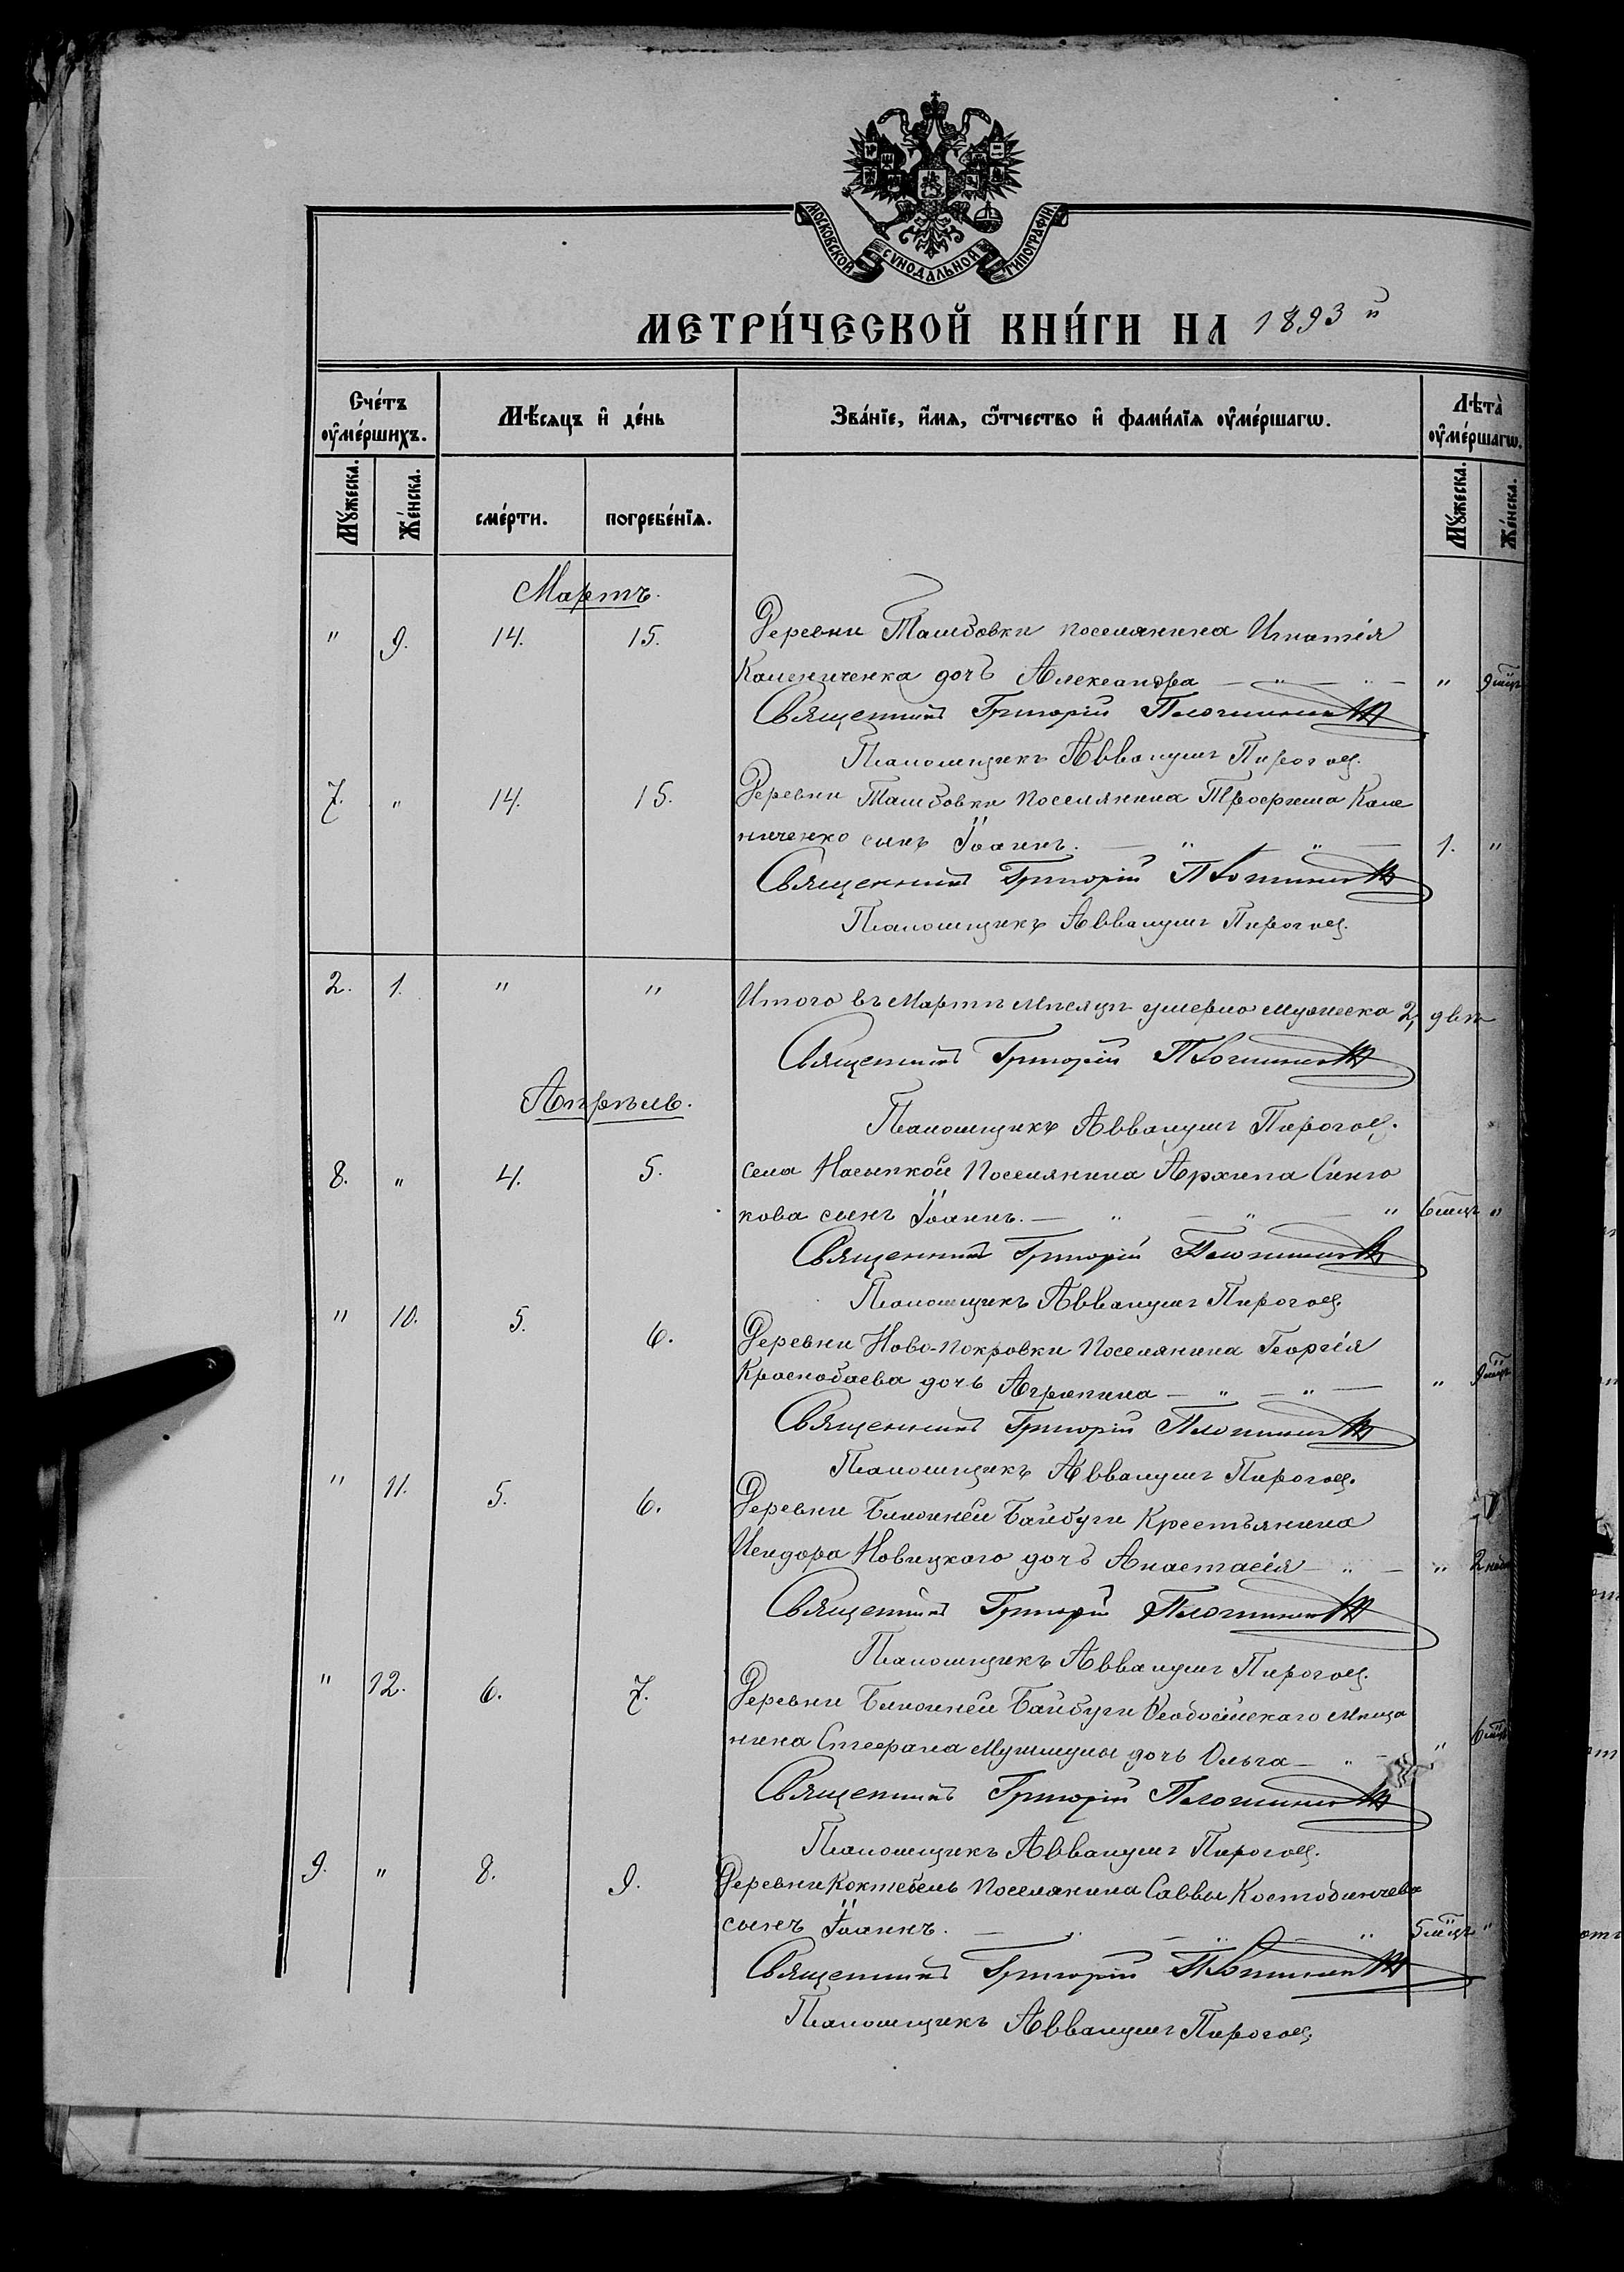 МОСКОВСКОЙ СѴНОДАЛЬНОЙ ТИПОГРАФІИ.
МЕТРИ́ЧЕСКОЙ КНИ́ГИ НА 1893 й
Сче́тъ ᲂу҆ме́ршихъ.
Мѣ́сяцъ и҆ де́нь
Зва́нїе, и҆́мѧ, ѻ҆́тчество и҆ фами́лїѧ ᲂу҆ме́ршагѡ.
Лѣта̀ ᲂу҆ме́ршагѡ.
Мꙋ́жеска. Же́нска. сме́рти. погребе́нїѧ. Мꙋ́жеска. Же́нска.
Мартъ.
" 9. 14. 15. Деревни Ташбовки поселянина Игнатія
Камениченка дочь Александра — " — " — " 9 мцъ
Священникъ Григорій
Псаломщикъ Аввакумъ Пирогов.
7. " 14. 15. Деревни Ташбовки Поселянина Трофима Каме
ниченко сынъ Іоаннъ. — " — " — 1. "
Священникъ Григорій
Псаломщикъ Аввакумъ Пирогов.
2. 1. " " Итого въ Мартѣ Мѣсяцѣ умерло мужеска 2, двѣ
Священникъ Григорій
Апрѣль.
Псаломщикъ Аввакумъ Пирогов.
8. " 4. 5. села Насыпкой Поселянина Архипа Синго
кова сынъ Іоаннъ. — " — " — " 6 мцъ "
Священникъ Григорій
Псаломщикъ Аввакумъ Пирогов.
" 10. 5. 6. Деревни Ново-Покровки Поселянина Георгія
Краснобаева дочь Агрипина — " — " — " 9 мцъ
Священникъ Григорій
Псаломщикъ Аввакумъ Пирогов.
" 11. 5. 6. Деревни Ближней Байбуги Крестьянина
Исидора Новицкаго дочь Анастасія — " — " 2 нед
Священникъ Григорій
Псаломщикъ Аввакумъ Пирогов.
" 12. 6. 7. Деревни Ближней Байбуги Ѳеодосійскаго Мѣща
нина Стефана дочь Ольга — " — " 6 мцъ
Священникъ Григорій
Псаломщикъ Аввакумъ Пирогов.
9. " 8. 9. Деревни Коктебель Поселянина Саввы
сынъ Іоаннъ. — " — " — " 5 мцъ "
Священникъ Григорій
Псаломщикъ Аввакумъ Пирогов.